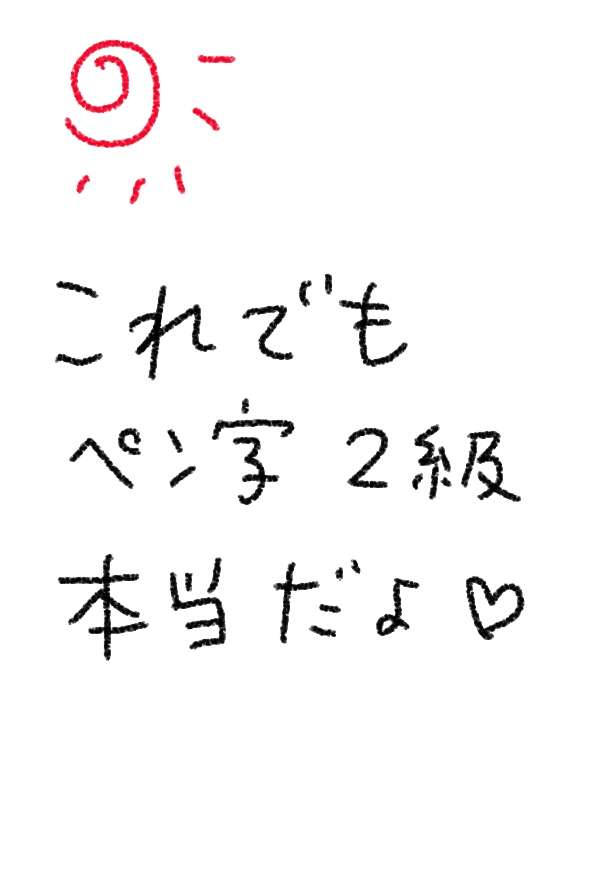 これでも
ペン字2級
本当だよ♡